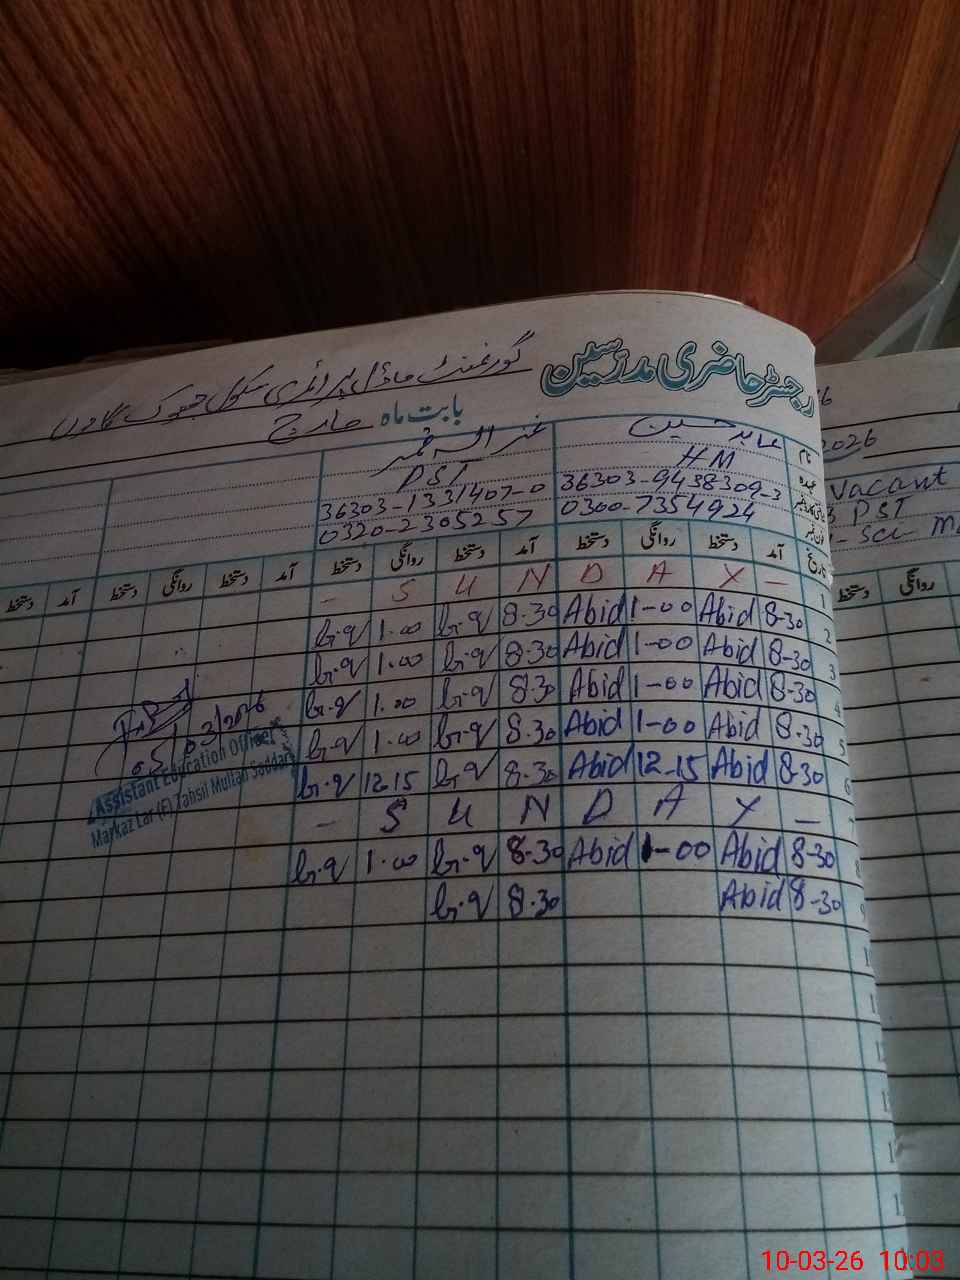 رجسٹر حاضری مدرسین
گورنمنٹ ماڈل پرائمری سکول جھوک گاموں
بابت ماہ مارچ
نام عابد حسین
عہدہ HM PST
36303-9438309-3 36303-1331407-0
0300-7354924 0320-2305257
تاریخ آمد دستخط روانگی دستخط آمد دستخط روانگی دستخط آمد دستخط روانگی دستخط آمد دستخط
1 — Y A D N U S —
2 8-30 Abid 1-00 Abid 8.30 1.00
3 8-30 Abid 1-00 Abid 8.30 1.00
4 8-30 Abid 1-00 Abid 8.30 1.00
5 8-30 Abid 1-00 Abid 8.30 1.00
6 8-30 Abid 12-15 Abid 8.30 12.15
7 — Y A D N U S —
8 8-30 Abid 1-00 Abid 8.30 1.00
9 8-30 Abid 8.30
05/03/2026
Assistant Education Officer
Markaz Lar (F) Tahsil Multan Saddar
2026
Vacant
PST
دستخط آمد روانگی
10-03-26 10:03